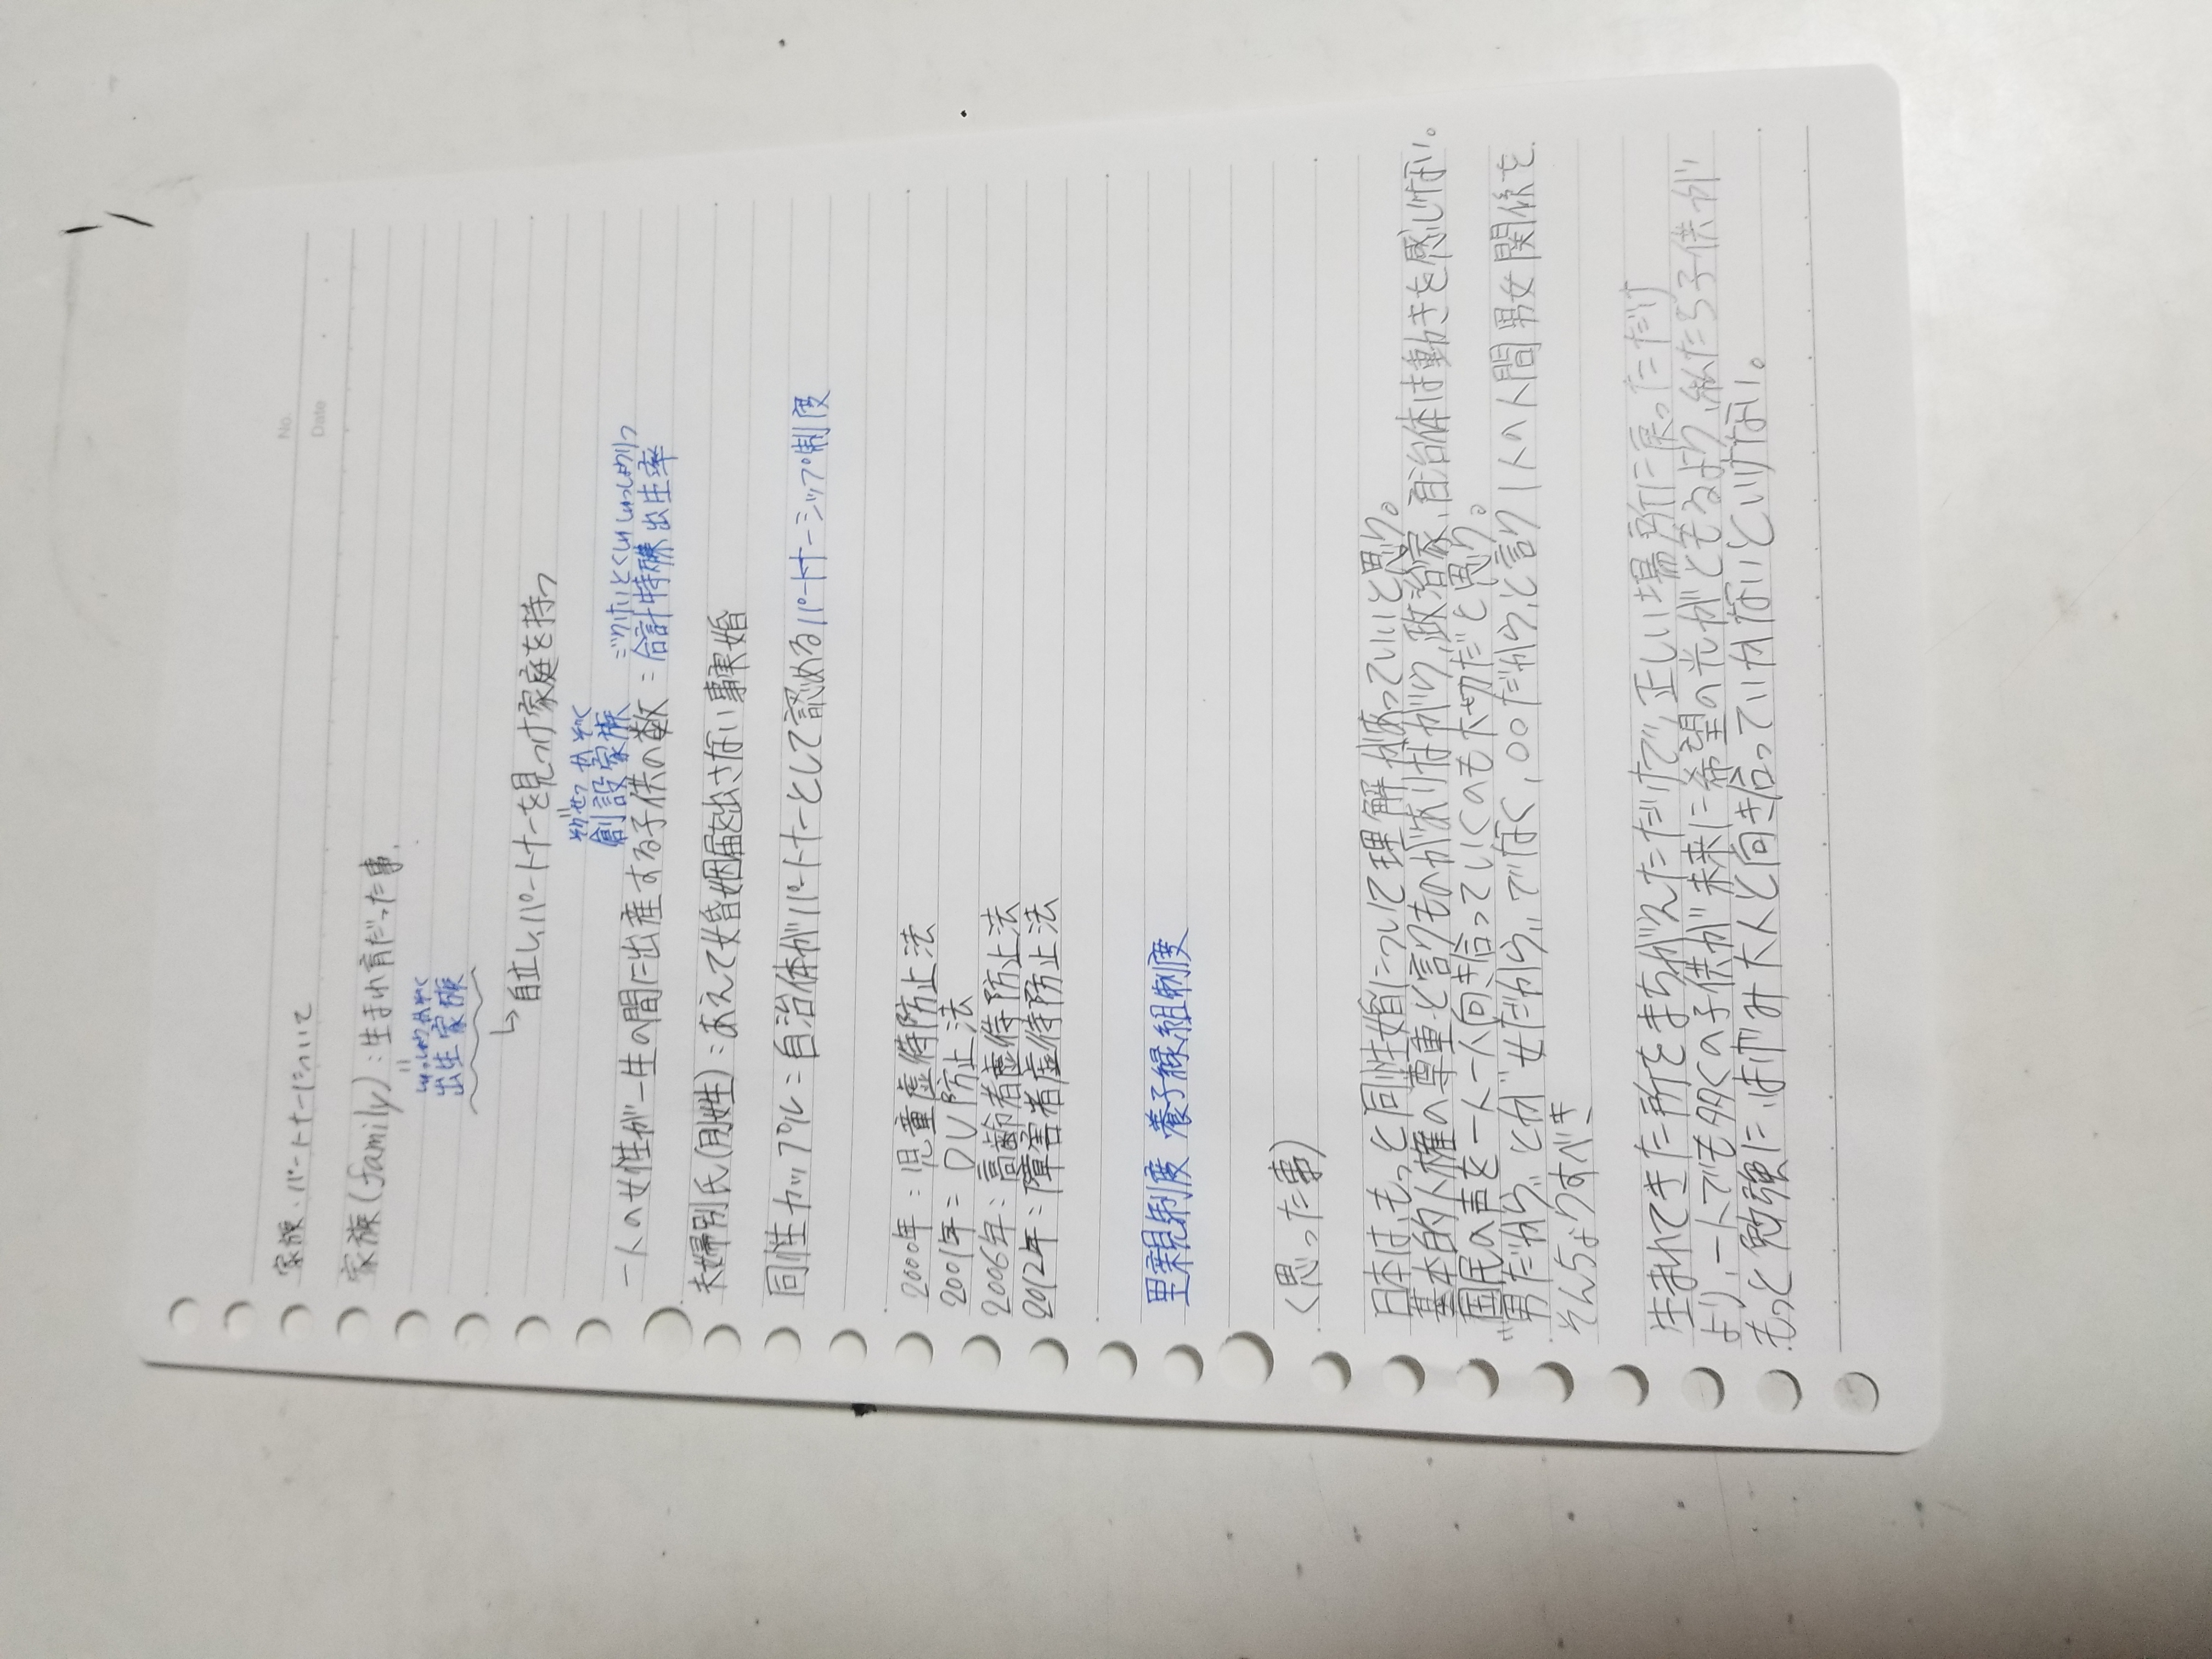 No.
Date
家族、パートナーについて
家族(family):生まれ育だった事.
しゅっしょうかぞく
出生家族
↳自立し、パートナーを見つけ家庭を持つ
そうせつ かぞく
創設家族
ごうけいとくしゅしゅっしょうりつ
一人の女性が一生の間に出産する子供の数=合計特殊出生率
夫婦別氏(別姓):あえて婚姻届を出さない事実婚
同性カップル=自治体がパートナーとして認めるパートナーシップ制度
2000年:児童虐待防止法
2001年=DV防止法
2006年:高齢者虐待防止法
2012年=障害者虐待防止法
里親制度 養子縁組制度
〈思った事〉
日本はもっと同性婚について理解があっていいと思う。
基本的人権の尊重と言うものがありながら、政治家、自治体は動きを感じない。
国民の声を一人一人向き合っていくのも大切だと思う。
"男だから"とか"女だから"でなく、○○だから、と言う1人の人間男女関係を
そんちょうすべき
生まれてきた所をまちがえただけで、正しい場所に戻っただけ
より、一人でも多くの子供が未来に希望の光がともるよう、私たち子供が
もっと勉強にはげみ大人と向き合っていかないといけない。